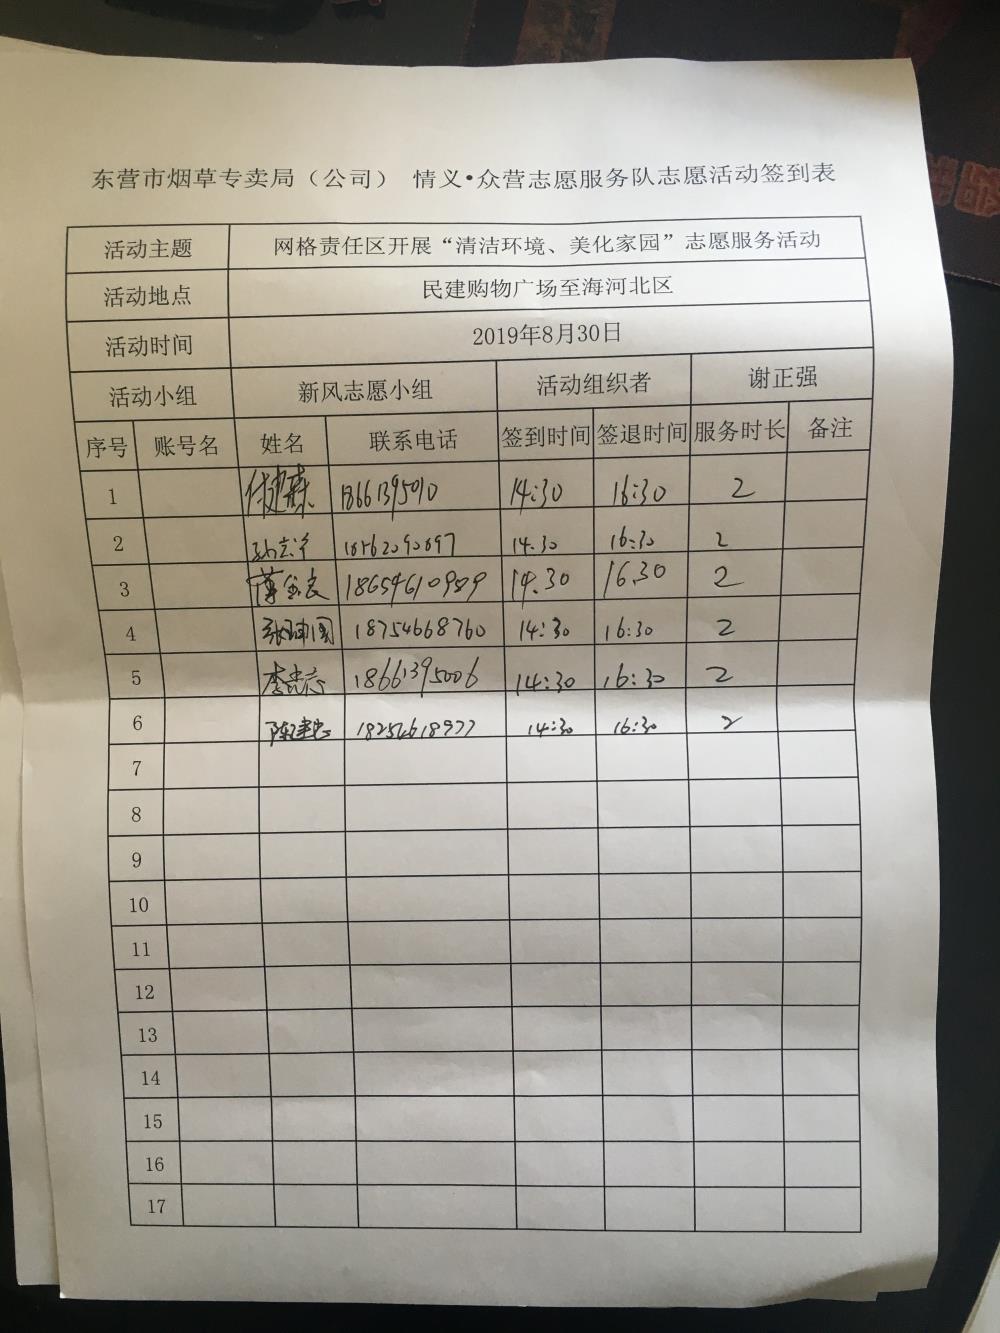 东营市烟草专卖局（公司） 情义•众营志愿服务队志愿活动签到表
活动主题 网格责任区开展“清洁环境、美化家园”志愿服务活动
活动地点 民建购物广场至海河北区
活动时间 2019年8月30日
活动小组 新风志愿小组 活动组织者 谢正强
序号 账号名 姓名 联系电话 签到时间 签退时间 服务时长 备注
1 18661395010 14:30 16:30 2
2 14.30 16:30 2
3 18654610989 14.30 16.30 2
4 18754668760 14:30 16:30 2
5 18661395006 14:30 16:30 2
6 陈建忠 18254618977 14:30 16:30 2
7
8
9
10
11
12
13
14
15
16
17